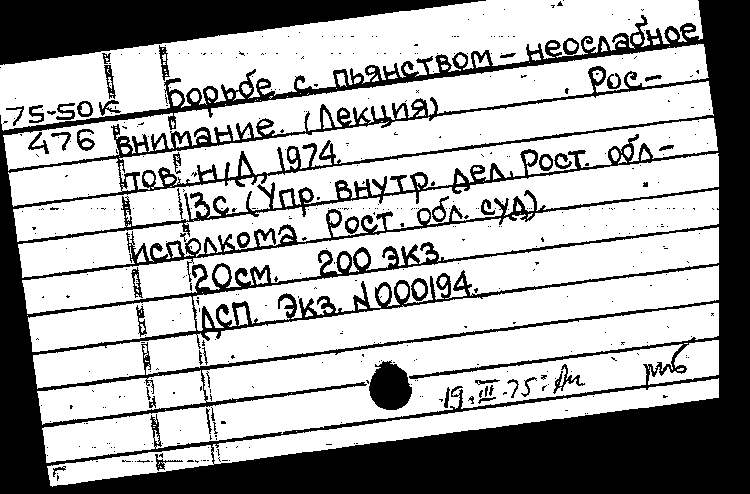 Борьбе с пьянством – неослабное
75-50к
476 внимание. (Лекция). Рос-
тов н/Д, 1974.
13с. (Упр. внутр. дел. Рост. обл-
исполкома. Рост. обл. суд).
20см. 200 экз.
ДСП. Экз. N000194.
19.III.75г.